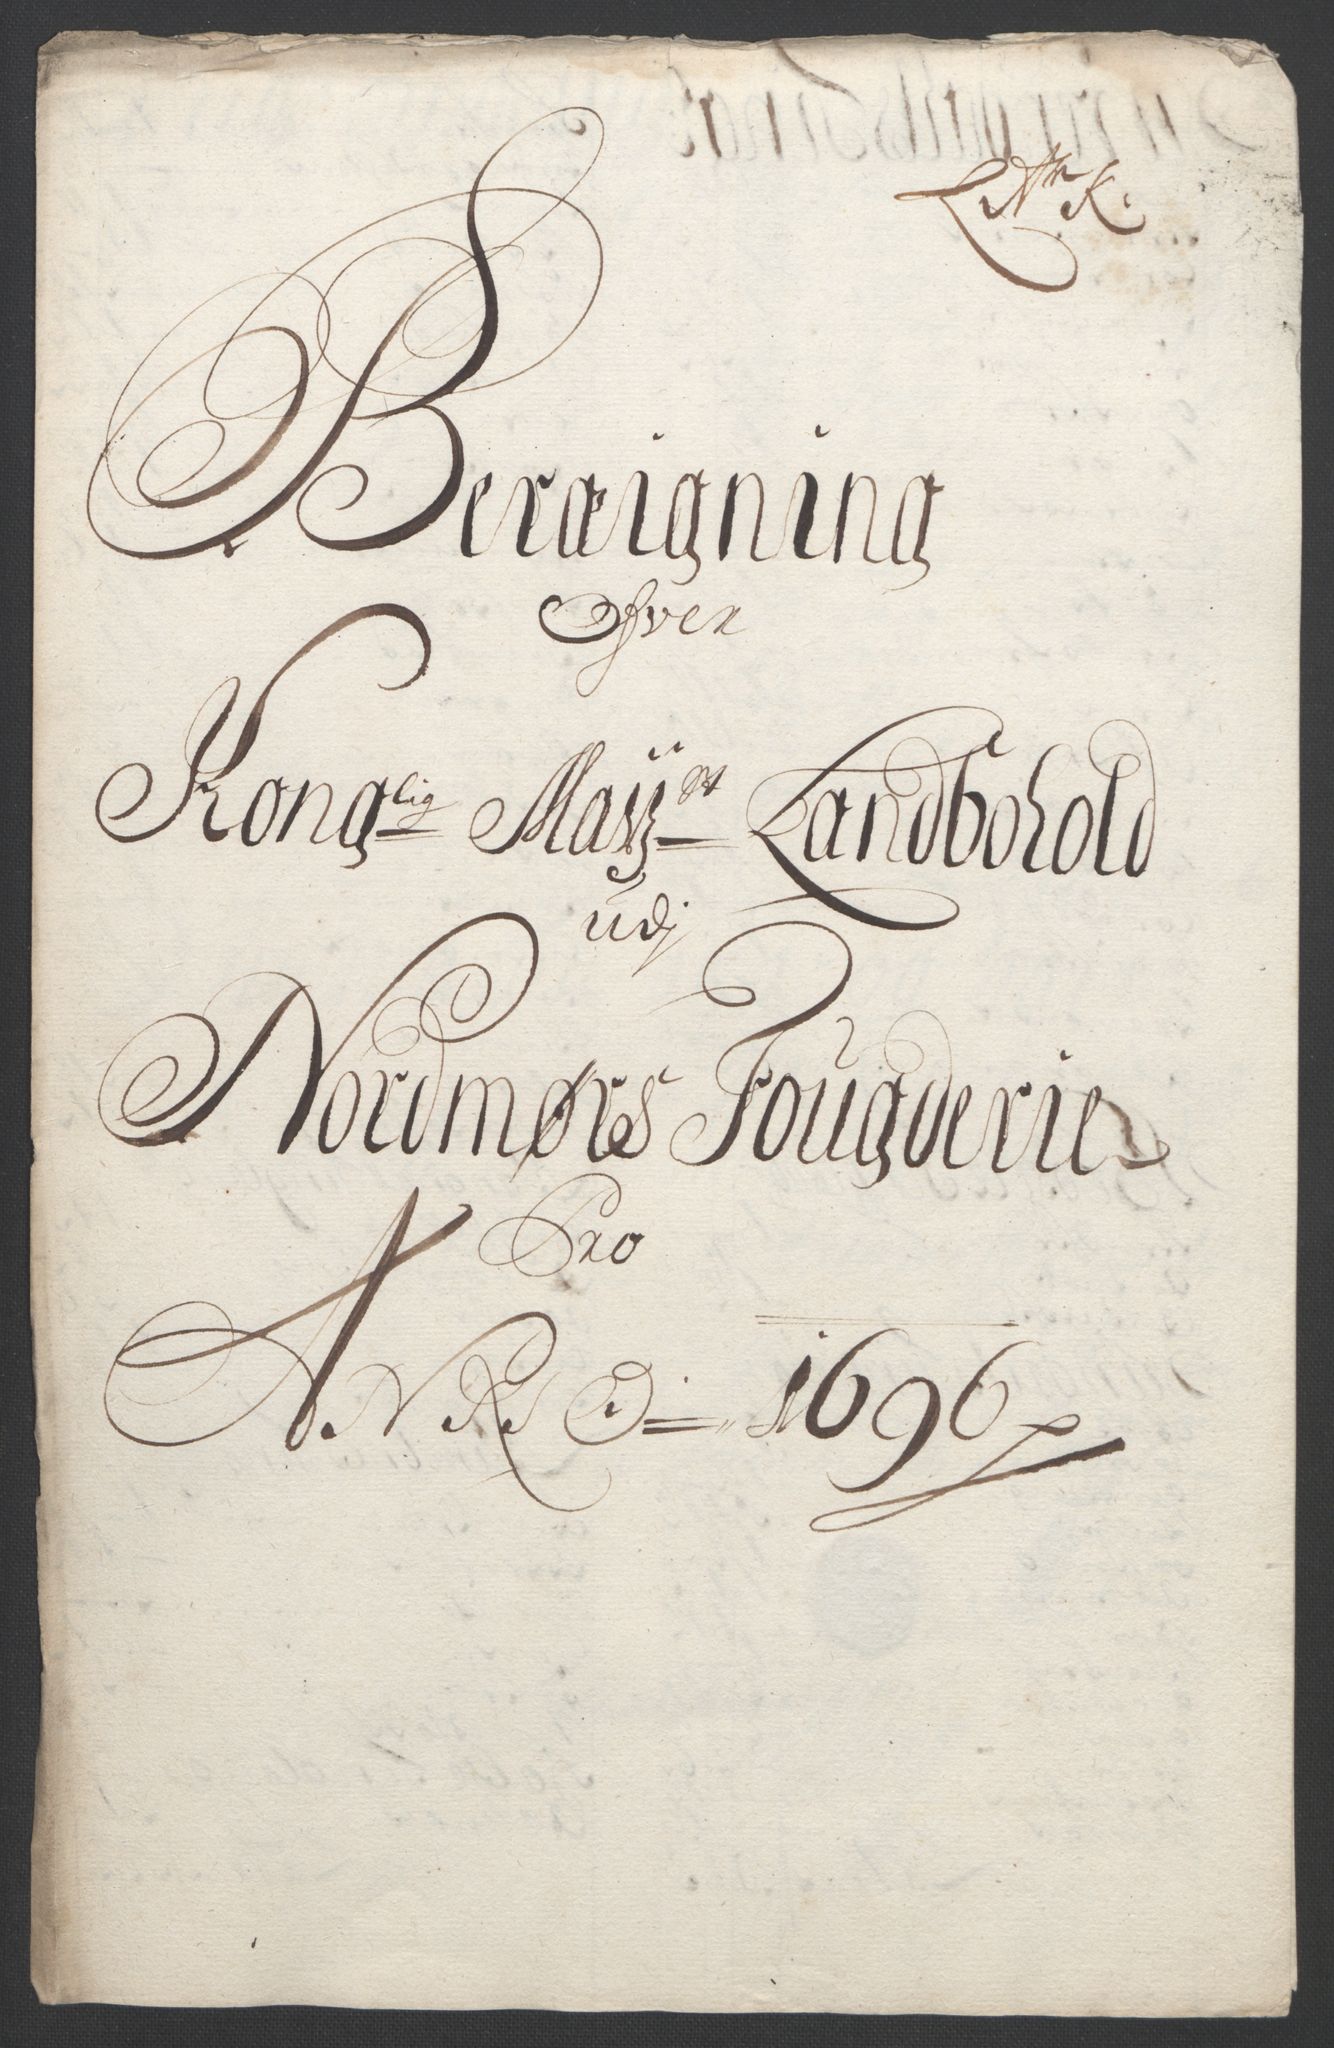 Litr K.
Beregning
Ofver
Konglig Maÿst Landbohold
udj
Nordmørs Fougderie
Pro
ANNO 1696